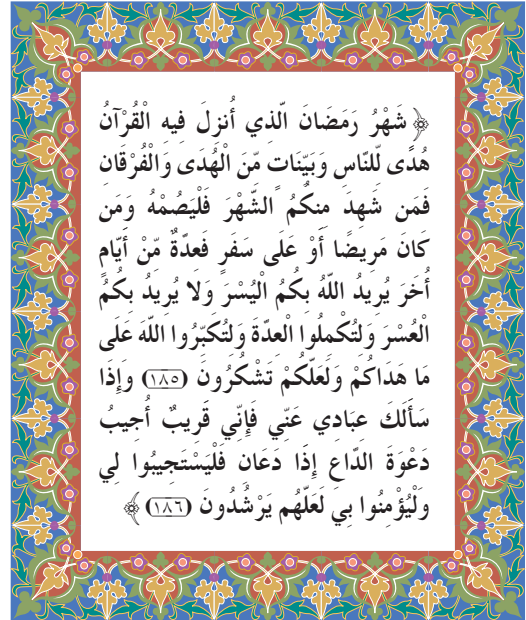 ﴿ شَهْرُ رَمَضَانَ الَّذي أُنزِلَ فيه الْقُرْآنُ
هُدًى لِّلنَّاس وَبَيِّنَات مِّنَ الْهُدَى وَالْفُرْقَان
فَمَن شَهدَ منكُمُ الشَّهْرَ فَلْيَصُمْهُ وَمَن
كَانَ مَريضًا أَوْ عَلَى سَفَرٍ فَعدَّةٌ مِّنْ أَيَّام
أُخَرَ يُريدُ اللَّهُ بكُمُ الْيُسْرَ وَلا يُريدُ بكُمُ
الْعُسْرَ وَلتُكْملُوا الْعدَّةَ وَلتُكَبِّرُوا اللَّهَ عَلَى
مَا هَدَاكُمْ وَلَعَلَّكُمْ تَشْكُرُونَ (١٨٥) وَإِذَا
سَأَلَكَ عبَادي عَنِّي فَإِنِّي قَريبٌ أُجيبُ
دَعْوَةَ الدَّاع إِذَا دَعَان فَلْيَسْتَجيبُوا لي
وَلْيُؤْمنُوا بي لَعَلَّهُم يَرْشُدُونَ (١٨٦) ﴾